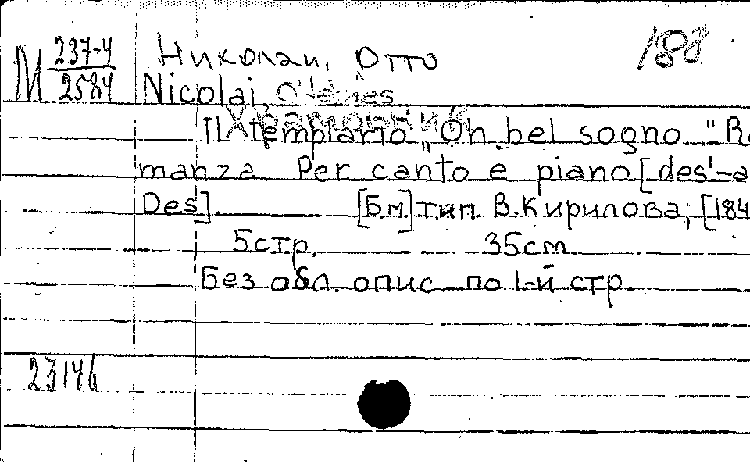 М 237-4/2584
Николаи, Отто
188
Nicolai, O
Храмовник
Il Templario „Oh bel sogno" Ro
manza Per canto e piano [des'-a
Des] [Б.м.] тип. В. Кирилова, [184
5 стр. 35 cm
Без обл. опис. по 1-й стр.
23146